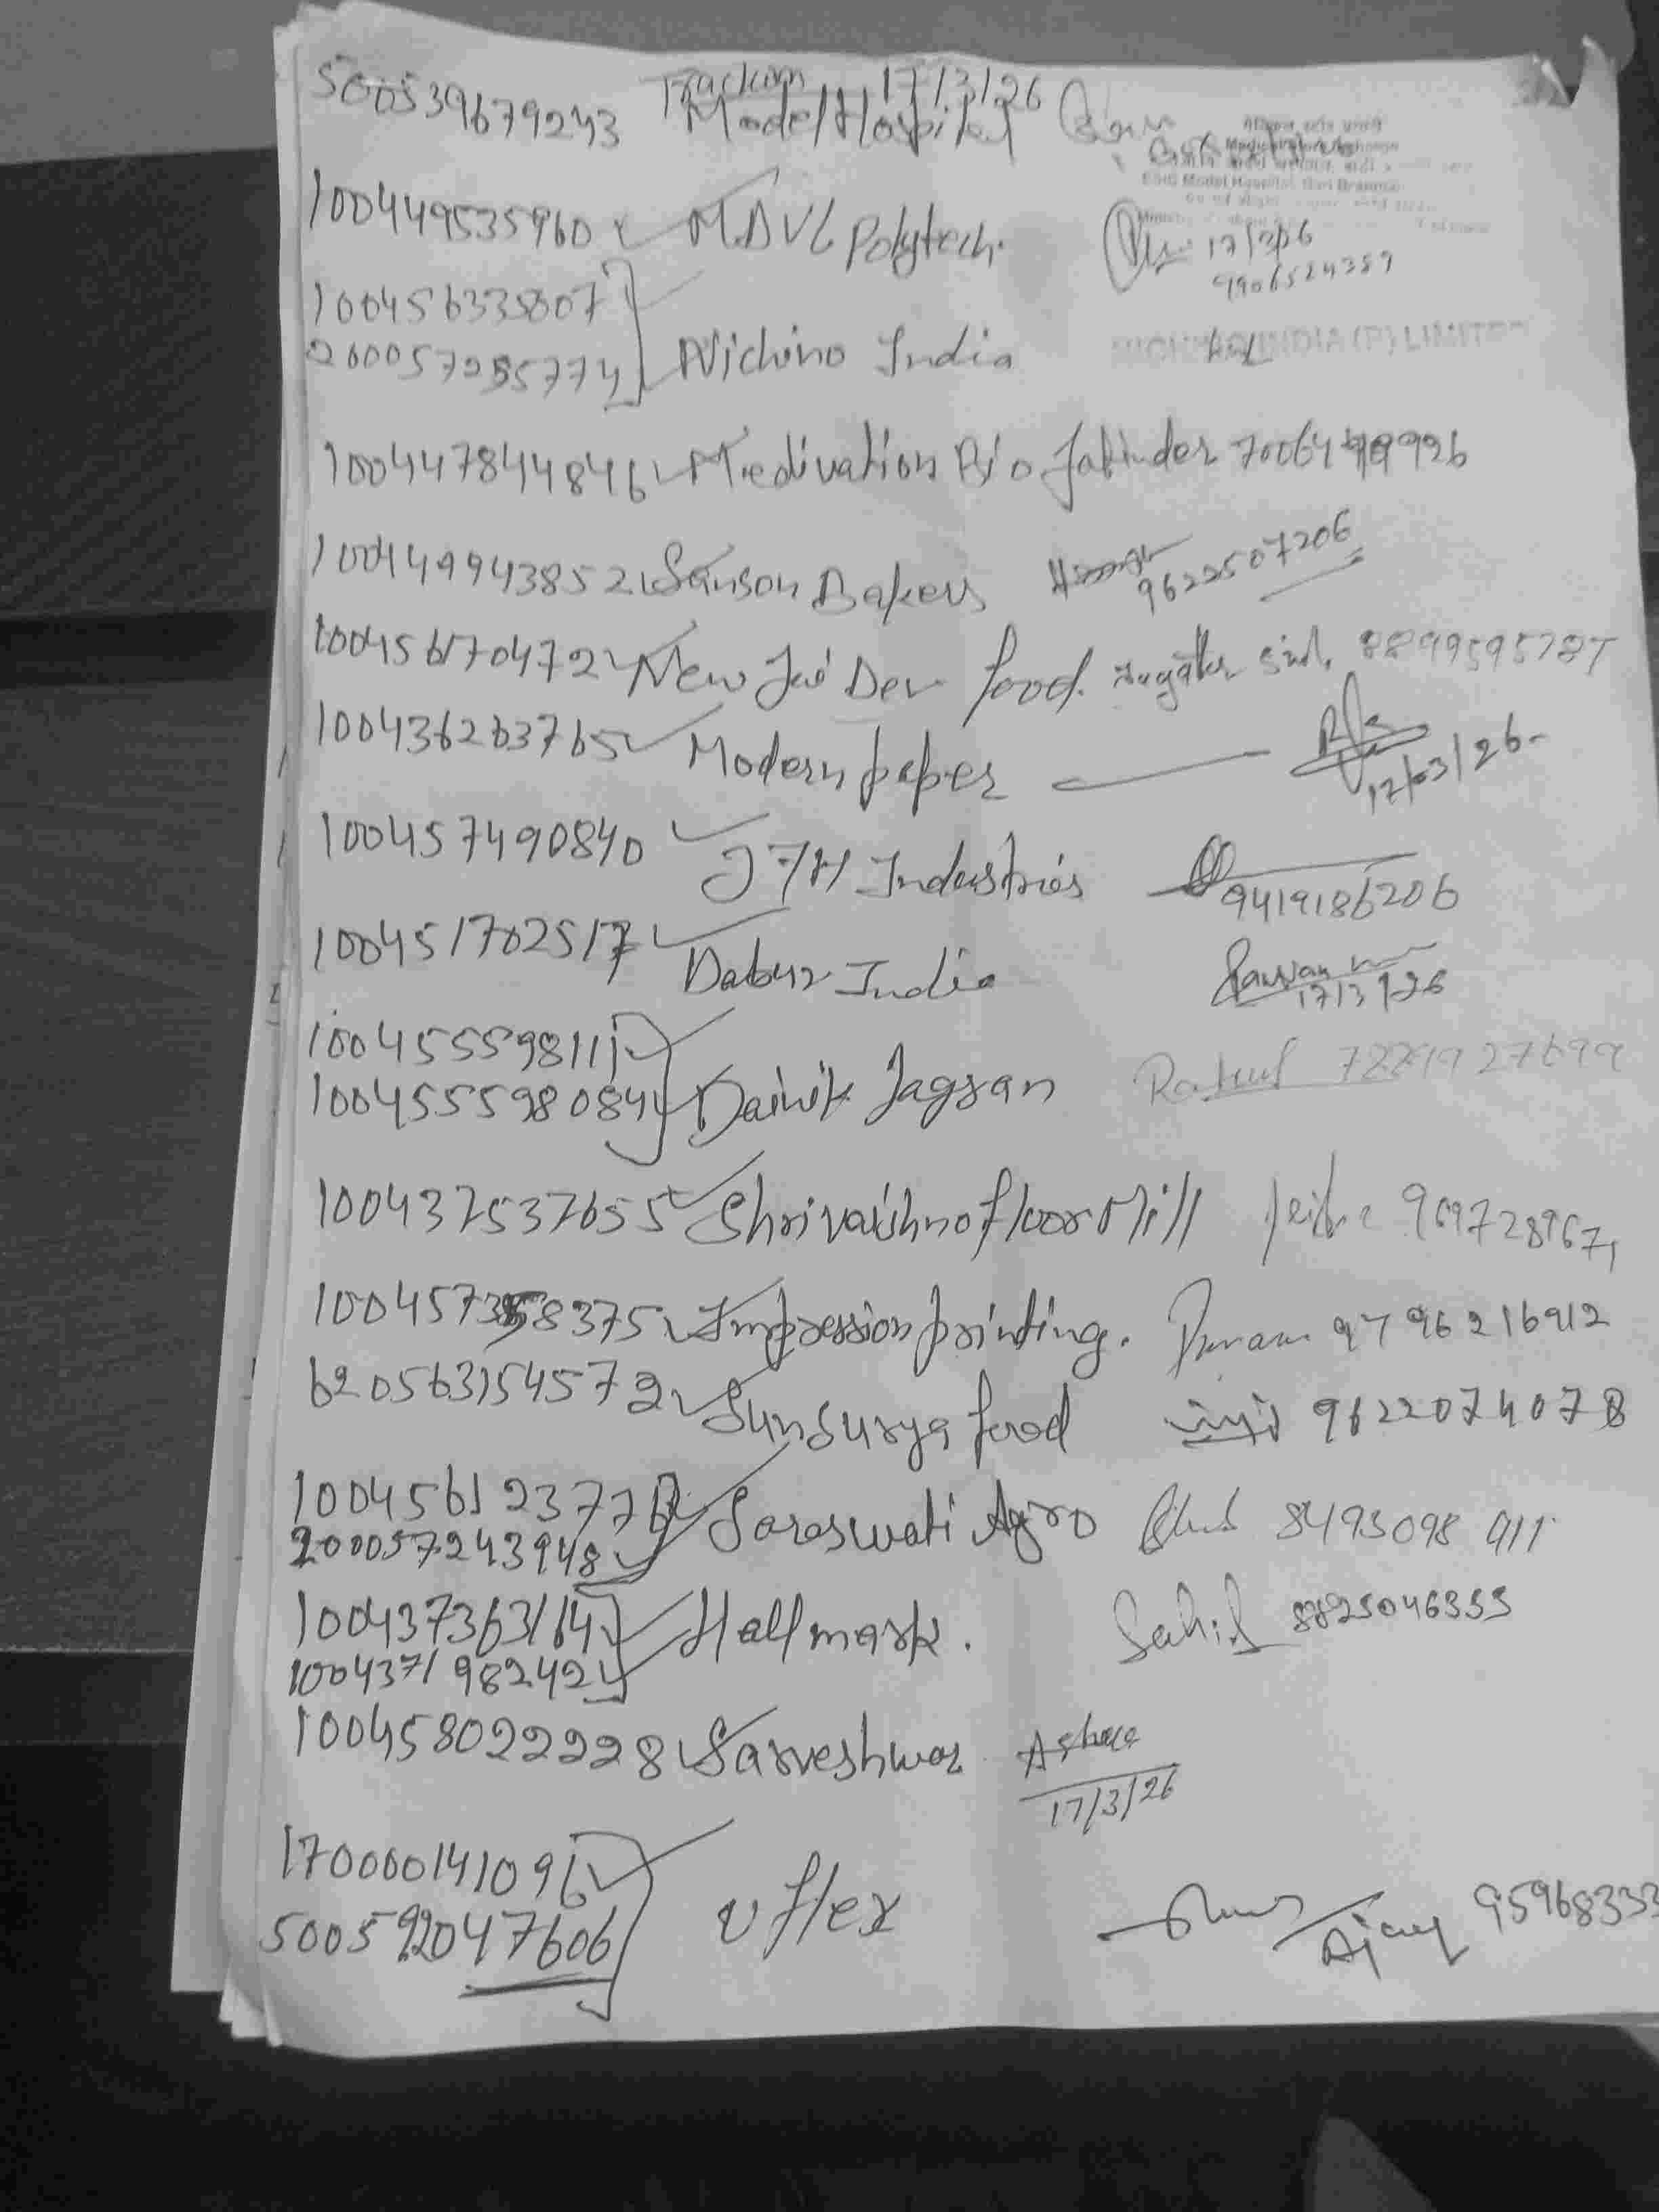 Trackon 17/3/26
500539679243 Model Hospital
ESIC Model Hospital, Bari Brahmna
100449535960 MDVL Polytech. 17/3/26
9906524389
100456335807
200057285774 Nichino India INDIA (P) LIMITED
100447844846 Medivation Bio Jatinder 7006449926
100449943852 Sanson Bakers 9622507206
100456170472 New Jai Dev food.
100436263765 Modern paper 17/03/26
100457490840 JTH Industries 9419186206
100451702517 Dabur India 17/3/26
100455598111
100455598084 Dainik Jagran Rahul
100437537655 Shrivaishno floor Mill
100457358375 Impression printing. 9796216912
620563154572 Sunsurya food 9622074078
100456123776 Saraswati Agro 8493098911
200057243948
100437363164 Hallmark. Sahil 8825046355
100437198242
100458022228 Sarveshwar
17/3/26
170000141096
500592047606 Uflex Ajay 95968333